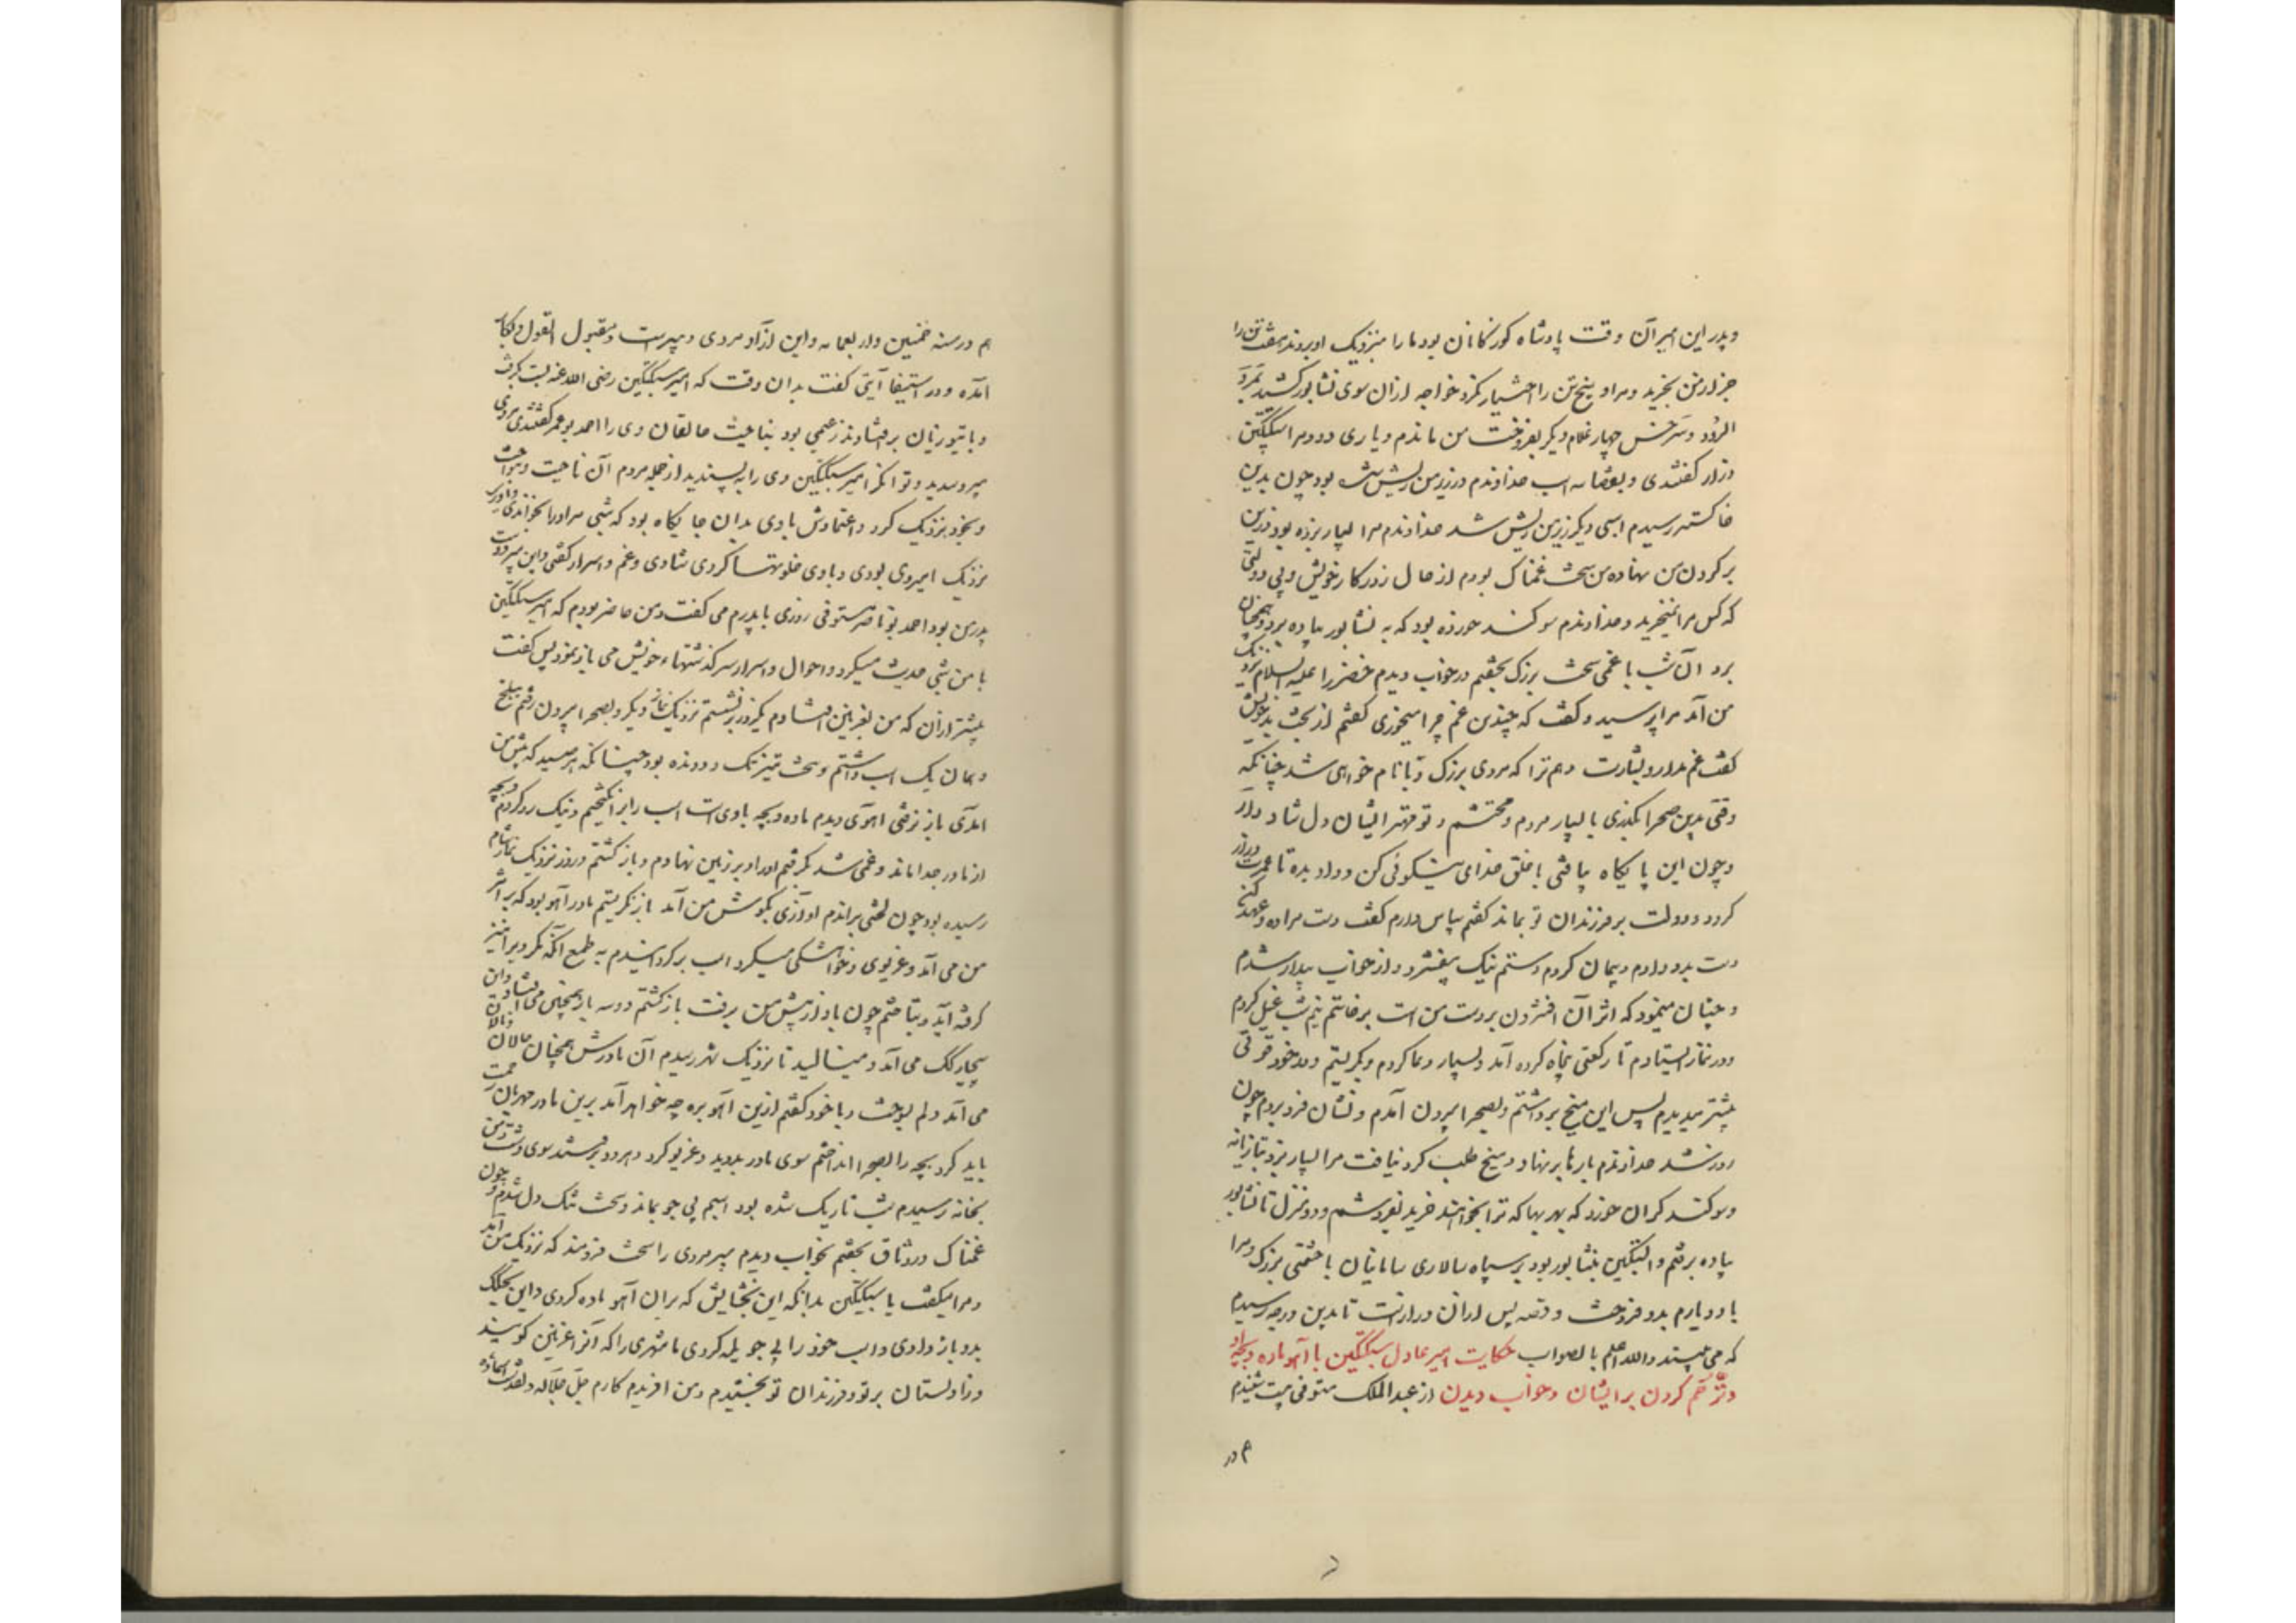 و پدر این امیر آن وقت پادشاه کوزکانان بود ما را بنزدیک او بردند هفت تن را
جز از من بخرید و مرا و پنج تن را اختیار نکرد خواجه از آن سوی نشابور کشید بمرو
الرود و سرخس چهار غلام دیگر بفروخت من ماندم و یاری دو و مرا سبکتکین
دراز گفتندی و بقضا سه اسب خداوندم در زیر من ریش شده بود چون بدین
خاکستر رسیدم اسبی دیگر زیر من ریش شد خداوندم مرا بسیار بزده بود و زین
بر گردن من نهاده من سخت غمناک بودم از حال و روزگار خویش و بی دولتی
که کس مرا نمیخرید و خداوندم سوگند خورده بود که به نشابور پیاده برد و همچنان
برد آن شب با غمی سخت بزرگ بخفتم در خواب دیدم خضر را علیه السلام نزدیک
من آمد مرا پرسید و گفت که چندین غم چرا میخوری گفتم از بخت بد خویش
گفت غم مدار و بشارت دهم ترا که مردی بزرگ و با نام خواهی شد چنانکه
وقتی بدین صحرا بگذری با بسیار مردم محتشم و تو مهتر ایشان دل شاد دار
و چون این پایگاه یافتی با خلق خدای نیکوئی کن و داد بده تا عمرت دراز
گردد و دولت بر فرزندان تو بماند گفتم سپاس دارم گفت دست مرا ده و عهد کن
دست بدو دادم و پیمان کردم دستم نیک بیفشرد و از خواب بیدار شدم
و چنان مینمود که اثر آن افشردن بر دست من است برخاستم نیم شب غسل کردم
و در نماز ایستادم تا رکعتی پنجاه کرده آمد و بسیار دعا کردم و بگریستم و در خود قوتی
بیشتر میدیدم پس این میخ برداشتم و بصحرا بیرون آمدم و نشان فرو بردم چون
روز شد خداوندم بارها بر نهاد و میخ طلب کرد نیافت مرا بسیار بزد بتازیانه
و سوگند گران خورد که بهر بها که ترا بخواهند خرید بفروشم و دو منزل تا نشابور
پیاده برفتم و البتکین بنشابور بود بر سپاه سالاری سامانیان با حشمتی بزرگ و مرا
با دو یارم بدو فروخت و قصه پس از آن دراز است تا بدین درجه رسیدم
که می بینید والله اعلم بالصواب حکایت امیر عادل سبکتکین با آهو ماده و بچه او
و ترحم کردن بر ایشان و خواب دیدن از عبدالملک مستوفی ببست شنیدم
هم در
هم در سنه خمسین و اربعمائه و این آزاد مردی دبیر است و مقبول القول و بکار
آمده و در استیفا آیتی گفت بدان وقت که امیر سبکتکین رضی الله عنه بست بگرفت
و بایتوزیان برافتادند زعیمی بود بناحیت جالقان وی را احمد بوعمر گفتندی مردی
پیر و سدید و توانگر امیر سبکتکین وی را بپسندید از جمله مردم آن ناحیت و بنواخت
و بخود نزدیک کرد و اعتمادش با وی بدان جایگاه بود که هر شبی مر او را بخواندی و
نزدیک امیر وی بودی و با وی خلوتها کردی شادی و غم و اسرار گفتی و این پیر دوست
پدر من بود احمد بوناصر مستوفی روزی با پدرم می گفت و من حاضر بودم که امیر سبکتکین
با من شبی حدیث میکرد و احوال و اسرار سرگذشتهاء خویش می باز نمود پس گفت
پیشتر از آن که من بغزنین افتادم یکروز برنشستم نزدیک نماز دیگر و بصحرا بیرون رفتم ببلخ
و همان یک اسب داشتم و سخت تیز تک و دونده بود چنانکه هر صید که پیش من
آمدی باز نرفتی آهوی دیدم ماده و بچه با وی است اسب را برانگیختم و نیک رو کردم و بچه
از مادر جدا ماند و غمی شد گرفتم او را و بر زین نهادم و باز گشتم و روز نزدیک نماز شام
رسیده بود چون لختی براندم آوازی بگوش من آمد باز نگریستم مادر آهو بود که بر اثر
من می آمد و غریوی و خواهشکی میکرد اسب برگردانیدم به طمع آنکه مگر وی را نیز
گرفته آید و بتاختم چون باد از پیش من برفت باز گشتم و دو سه بار همچنین می افتاد و این
بیچارگک می آمد و مینالید تا نزدیک شهر رسیدم آن مادرش همچنان نالان
می آمد دلم بسوخت و با خود گفتم ازین آهو بره چه خواهد آمد برین مادر مهربان رحمت
باید کرد بچه را بصحرا انداختم سوی مادر بدوید و غریو کرد و هر دو برفتند سوی دشت و من
بخانه رسیدم شب تاریک شده بود اسبم بی جو بماند و سخت تنگ دل شدم و چون
غمناک در وثاق بخفتم بخواب دیدم پیرمردی را سخت فرهمند که نزدیک من آمد
و مرا میگفت یا سبکتکین بدانکه این بخشایش که بر آن آهو ماده کردی و این بچگک
بدو باز دادی و اسب خود را بی جو یله کردی ما شهری را که آنرا غزنین گویند
و زاولستان بر تو و فرزندان تو بخشیدم و من آفریدگارم جل جلاله و تقدست اسماؤه